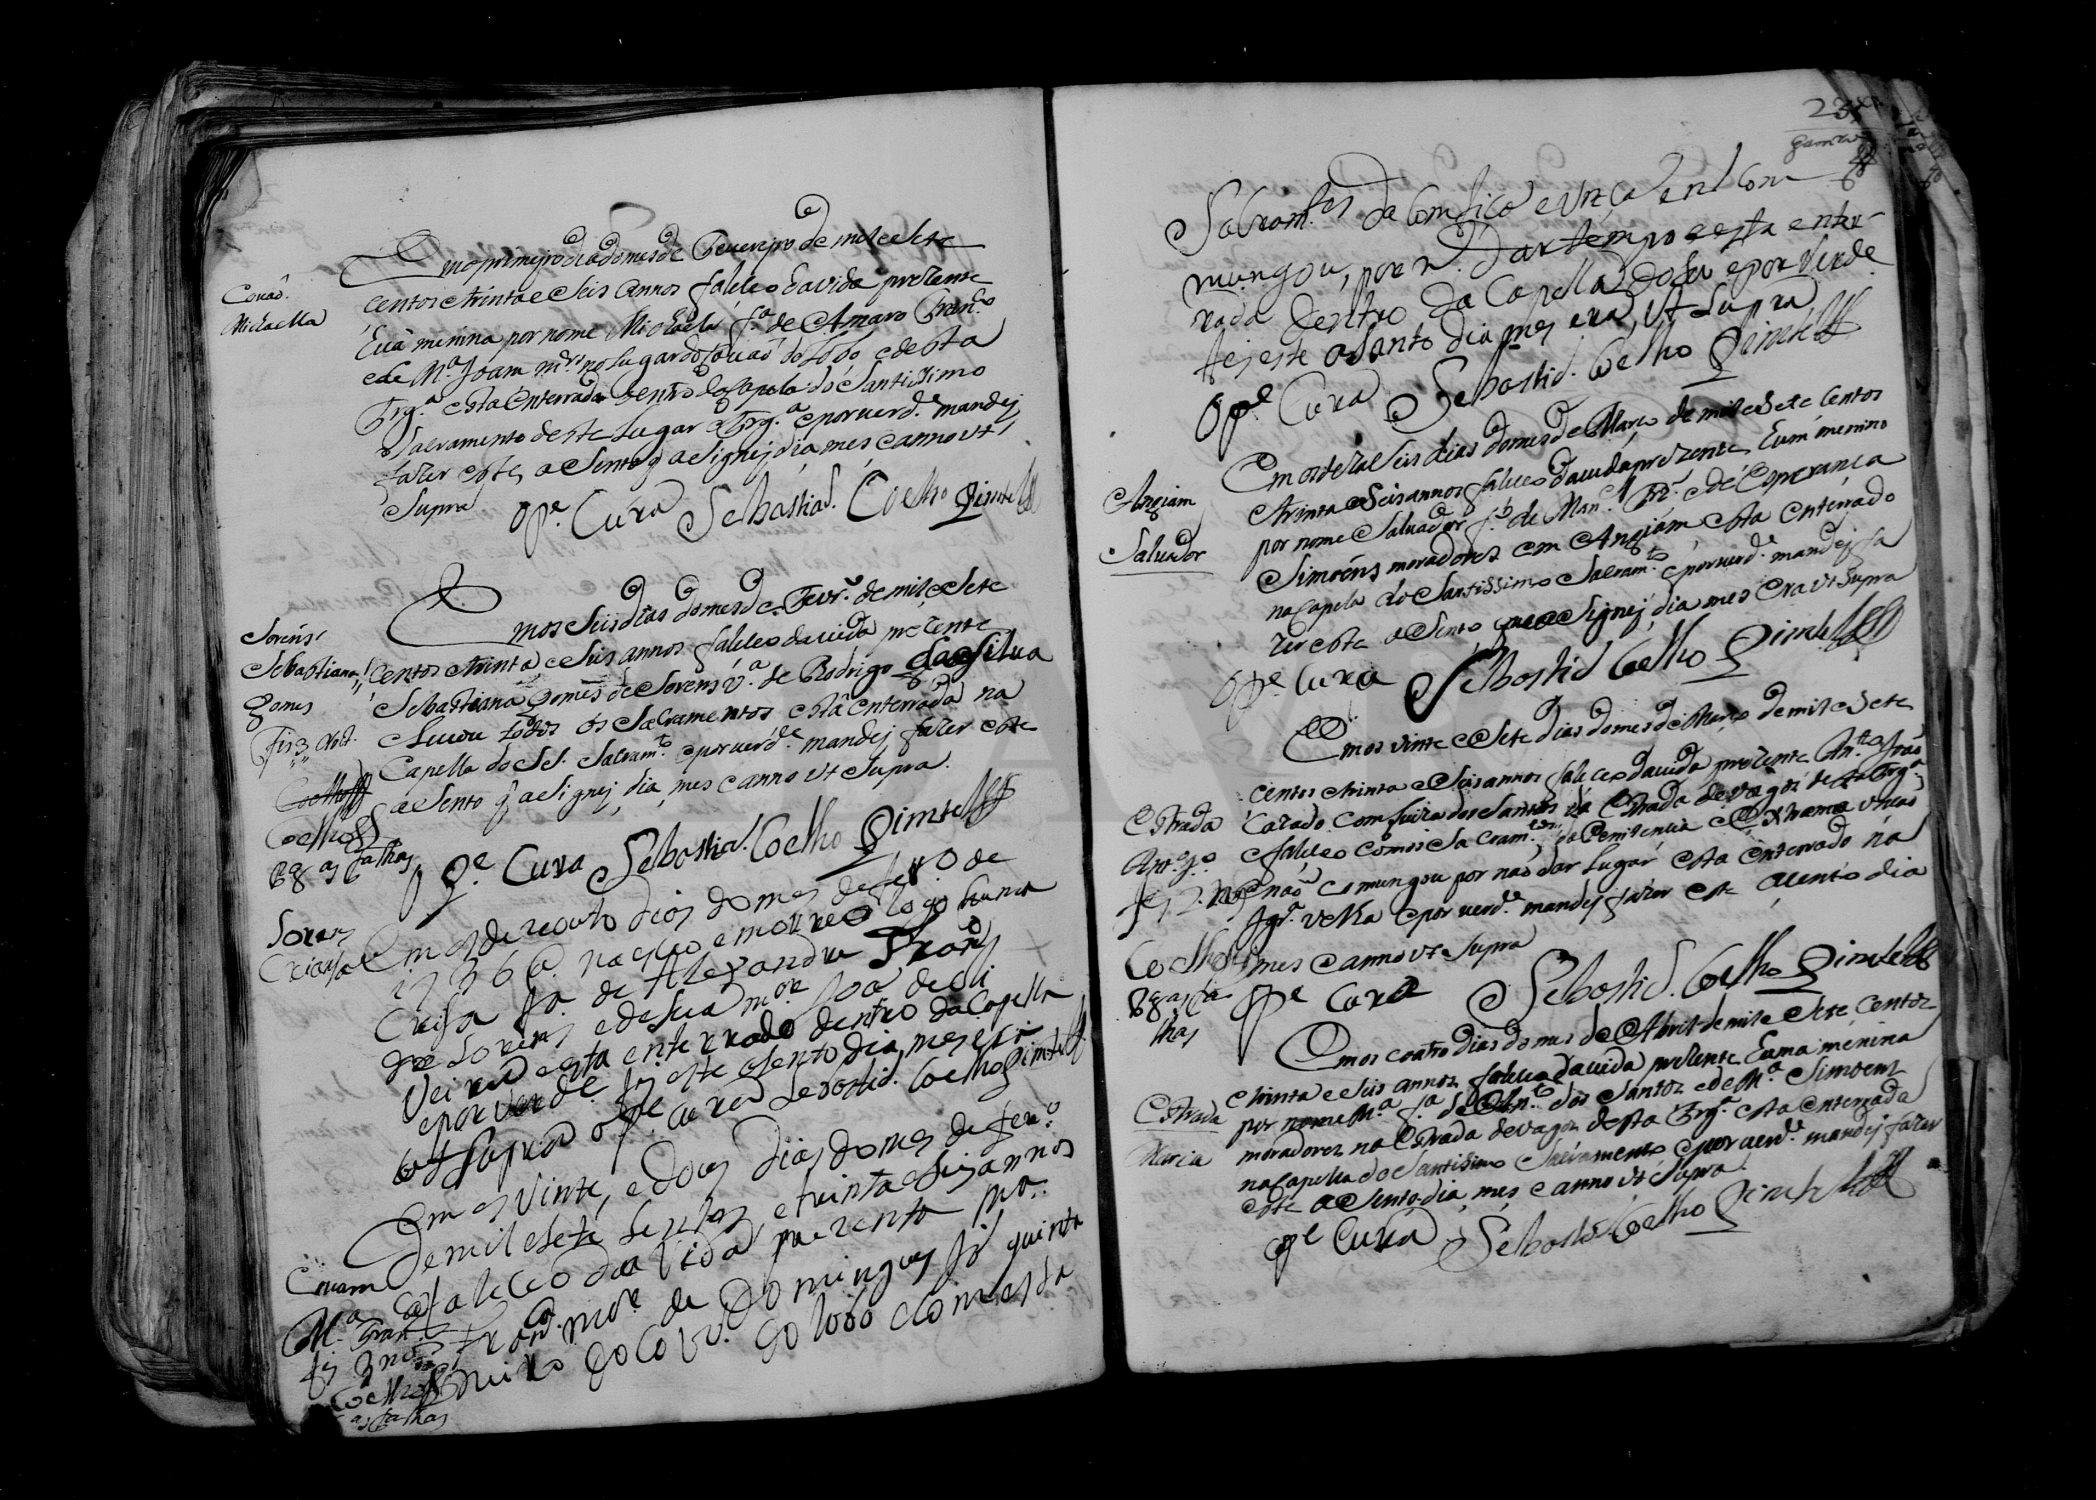 Covaõ.
Michaella
Em o primeiro dia do mes de Feuereiro de mil e Sete
centos e trinta e Seis annos faleceo da vida prezente
huã menina por nome Michaela f.ª de Amaro Fran.co
e de M.ª Joam m.res no lugar do Couaõ do Lobo e desta
Frg.ª esta enterrada dentro da Capela do Santissimo
Sacramento deste lugar e Frg.ª e por uerd.e mandej
fazer este aSento q aSignej dia mes e anno vt
Supra
O P.e Cura Sebastiaõ. Coelho Pimtel
Sorẽns
Sebastiana
gomes
fis 3 Not.
Coelho
Coelho
as falhas
Em os Seis dias do mes de Feur.º de mil e Sete
centos e trinta e Seis annos faleceo da uida prezente
Sebastiana gomes de Sorens v.ª de Rodrigo da Silua
e leuou todos os Sacramentos está enterrada na
Capella do SS. Sacram.to e por uerd.e mandej fazer este
aSento q aSignej dia, mes e anno vt Supra.
O P.e Cura Sebastiã. Coelho Pimtel
Sorens
Criansa
Em os dezeouto dias do mes de feu.ro de
1736 a. nasceo e morreo logo huma
Criansa f.a de Alexandre Fran.co
de Sorens e de sua m.er Joã de Oli
veira esta enterrado dentro da Capella
e por verde fis este asento dia mes era
vt supra o P.e Cura Sebastiã. Coelho Pimtel
Covam
M.ª Fran.ca
fis 3 no
Coelho
as falhas
Em os vinte, e dous dias do mes de feu.ro
de mil e sete sentos e trinta e seis annos
faleceo da vida prezente Ma.
Fran.ca mer de Domingos f.o quinta
do Covã. do lobo e com
23
gamra
Sacram.tos da Comfica e Unca e nã com
mungou, por n. dar tempo e esta enter
rada dentro da Capella do lu e por Verde
fis este asanto dia mes era Ut Supra
O P.e Cura Sebastiã. Coelho Pimtel
Angiam
Salvador
Em os dezaSeis dias do mes de Março de mil e Sete centos
e trinta e Seis annos faleceo da uida prezente hum menino
por nome Saluador f.o de Man.el Frz. e de Esperança
Simoens moradores em Angiam esta enterrado
na Capela do Santissimo Sacram.to e por uerd.e mandej fa
zer este aSento que aSignej dia mes era vt Supra
O P.e Cura Sebastiã Coelho Pimtel
Estrada
Ant.o J.o
Coelho
as fa
lhas
Em os vinte e Sete dias do mes de Março de mil e Sete
centos e trinta e Seis annos faleceo da uida prezente An.to Joaõ
Cazado com Luiza dos Santos da Estrada de Vagos desta Frg.ª
e faleceo com os Sacram.tos da Penitencia e Extrema unçaõ
e naõ comungou por naõ dar lugar esta enterrado na
Igr.ª velha e por uerd.e mandej fazer este aSento dia
mes e anno vt Supra
O P.e Cura Sebastiã. Coelho Pimtel
Estrada
Maria
Em os coatro dias do mes de Abril de mil e Sete centos
e trinta e Seis annos faleceo da uida prezente huma menina
por nome M.ª f.ª de An.to dos Santos e de M.ª Simoens
moradores na Estrada de vagos desta Frg.ª esta enterrada
na Capella do Santissimo Sacramento e por uerd.e mandej fazer
este aSento dia mes e anno vt Supra.
O P.e Cura Sebastiã Coelho Pimtel